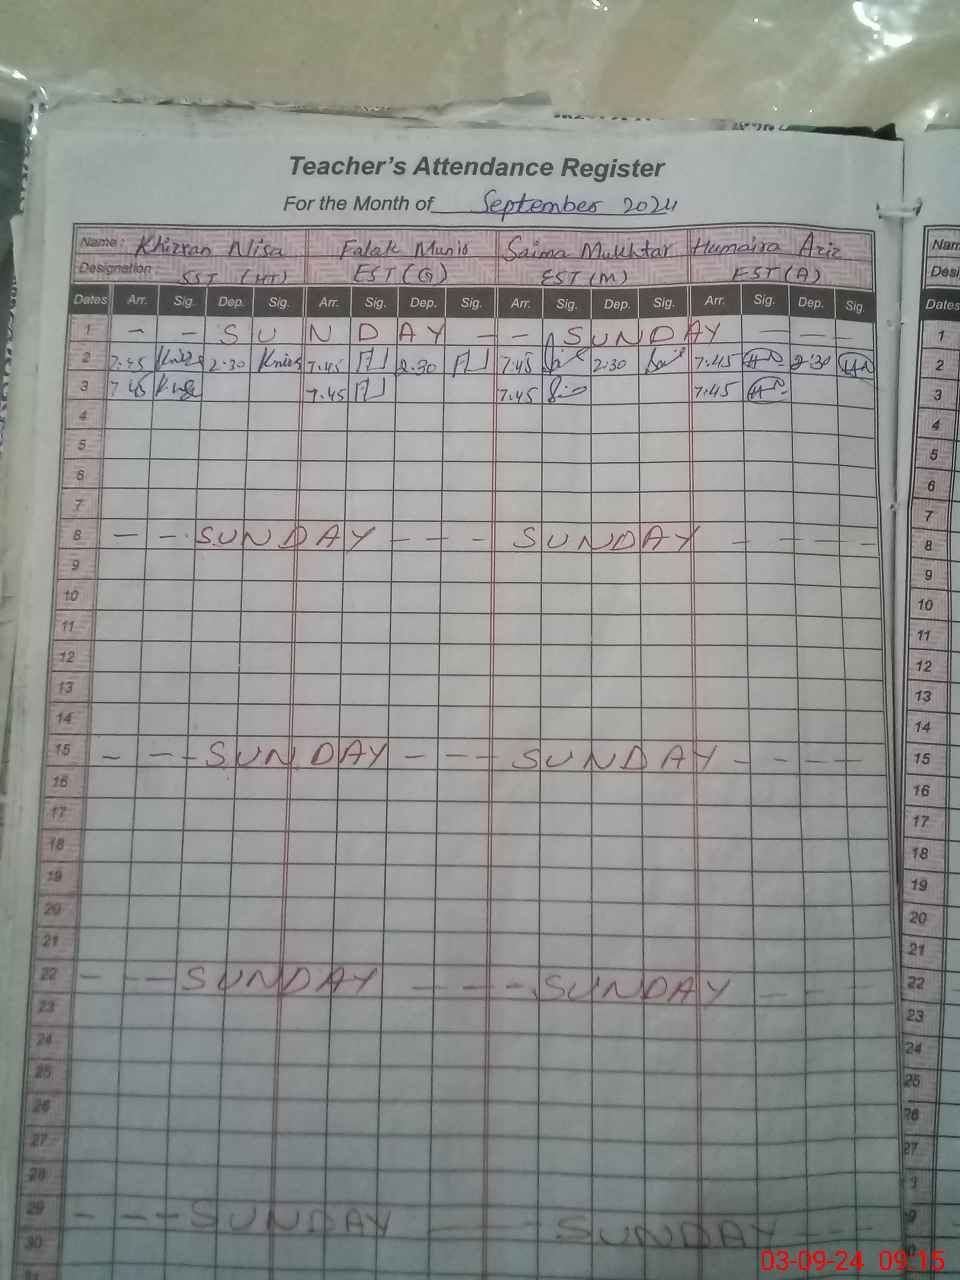 Teacher's Attendance Register
For the Month of September 2024
Name: Khizran Nisa Falak Munir Saima Mukhtar Humaira Aziz Nam
Designation: SST (HT) EST (G) EST (M) EST (A) Desi
Dates Arr. Sig. Dep. Sig. Arr. Sig. Dep. Sig. Arr. Sig. Dep. Sig. Arr. Sig. Dep. Sig. Dates
1 - - SUNDAY - - SUNDAY - - - 1
2 7.45 2.30 7.45 2.30 7.45 2:30 7.45 2:30 2
3 7.45 7.45 7.45 7.45 3
4 4
5 5
6 6
7 7
8 - - - SUNDAY - - - - SUNDAY - - - - 8
9 9
10 10
11 11
12 12
13 13
14 14
15 - - - SUNDAY - - - SUNDAY - - - - 15
16 16
17 17
18 18
19 19
20 20
21 21
22 - - - SUNDAY - - - - SUNDAY - - - 22
23 23
24 24
25 25
26 26
27 27
28
29 - - - SUNDAY SUNDAY - - 9
30
03-09-24 09:15